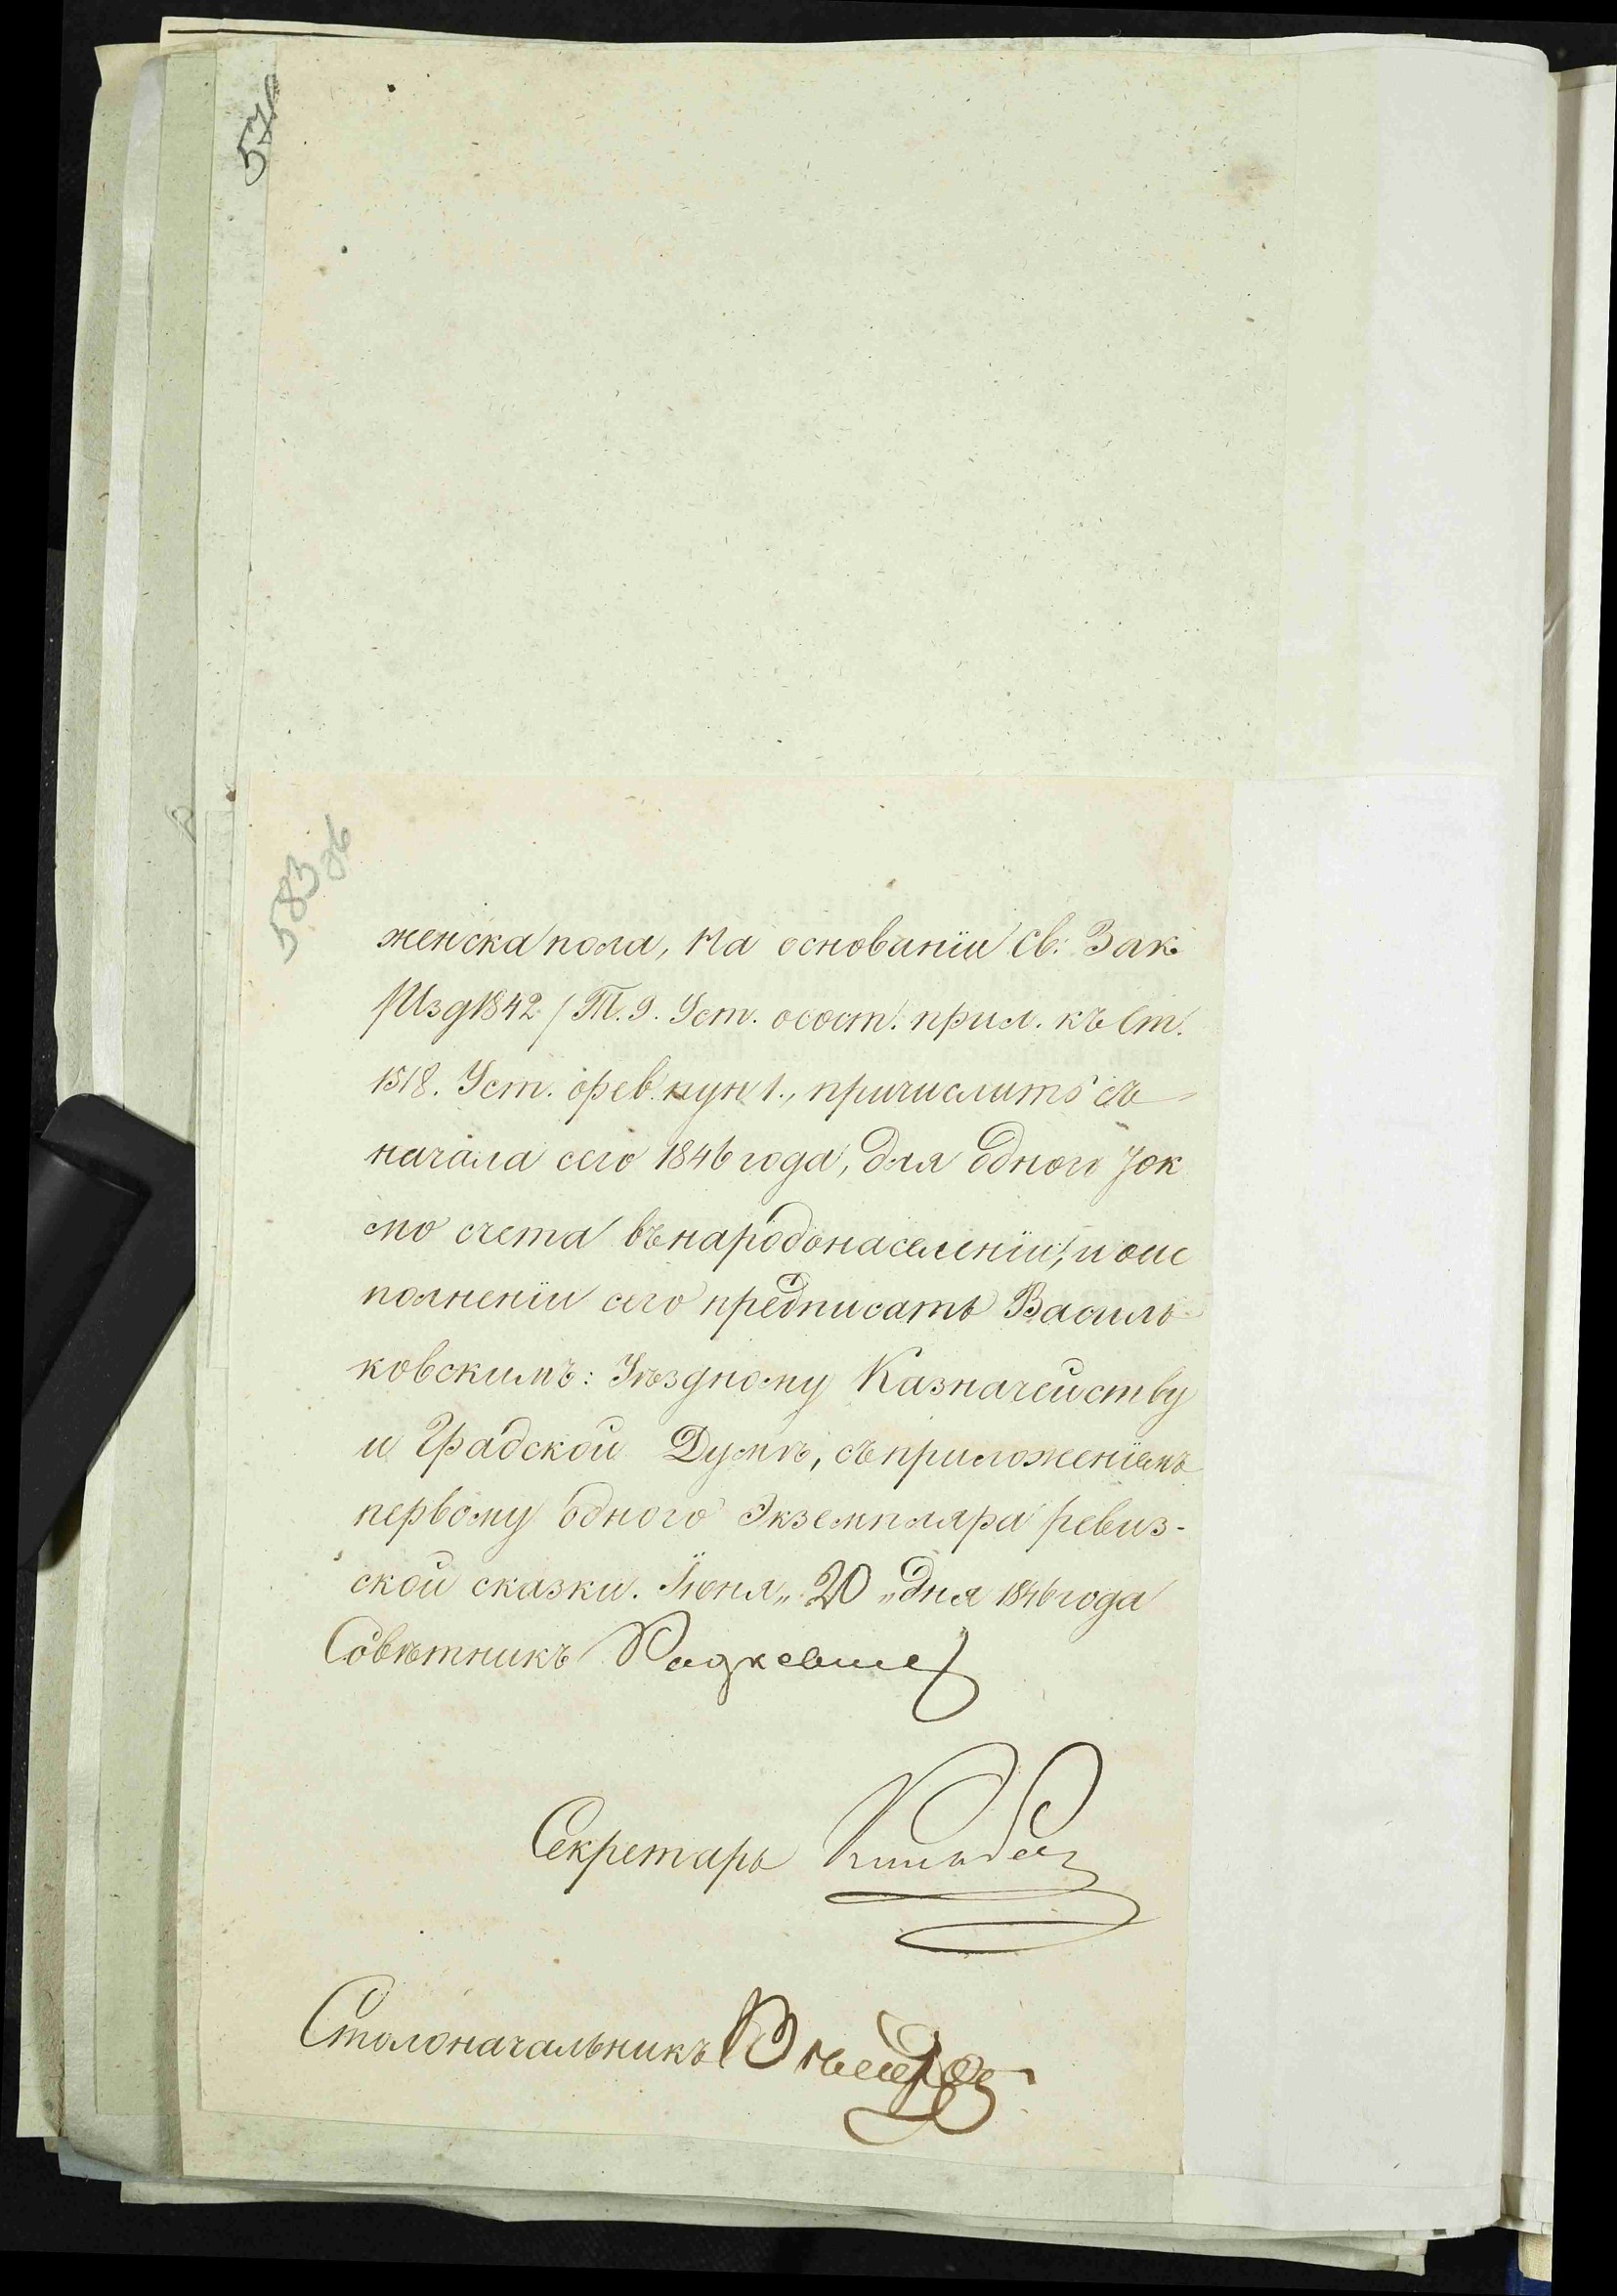 583 об
женска пола, На основаніи Св: Зак
/Изд 1842/ Т. 9. Уст. о сост. прил. къ Ст.
1518. Уст. о рев. пун 1., причислить съ
начала сего 1846 года, для одного ток
мо счета въ народонаселеніи; и о ис
полненіи сего предписать Василь
ковскимъ: Уѣздному Казначейству
и Градской Думѣ, съ приложеніемъ
первому одного Экземпляра ревиз-
ской сказки. Іюня „20„ дня 1846 года
Совѣтникъ Радкевич
Секретарь
Столоначальникъ